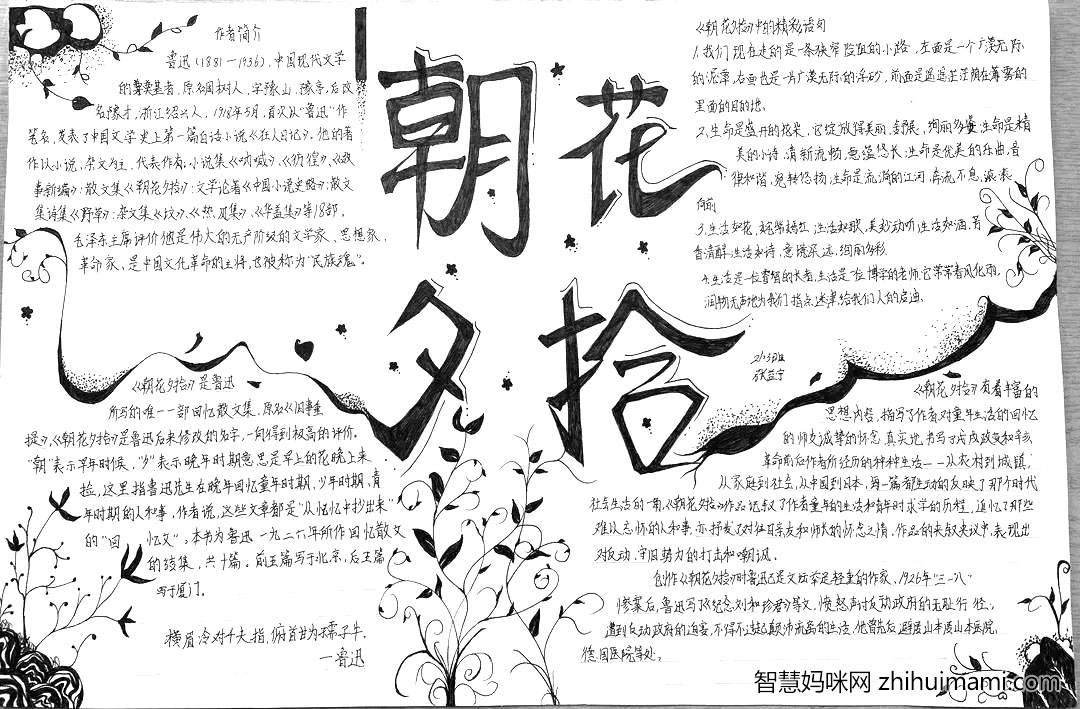 作者简介
鲁迅(1881—1936),中国现代文学
的奠基者,原名周树人,字豫山、豫亭,后改
名豫才,浙江绍兴人,1918年5月,首次从"鲁迅"作
笔名,发表了中国文学史上第一篇白话小说《狂人日记》。他的著
作以小说、杂文为主,代表作有:小说集《呐喊》、《彷徨》、《故
事新编》;散文集《朝花夕拾》;文学论著《中国小说史略》;散文
集诗集《野草》;杂文集《坟》、《热风集》、《华盖集》等18部。
毛泽东主席评价他是伟大的无产阶级的文学家、思想家,
革命家,是中国文化革命的主将,也被称为"民族魂"。
朝花
夕拾
《朝花夕拾》中的精彩语句
1.我们现在走的是一条狭窄险阻的小路,左面是一个广漠无际
的泥潭,右面也是一片广漠无际的浮砂,前面是遥遥茫茫荫在薄雾的
里面的目的地。
2.生命是盛开的花朵,它绽放得美丽,舒展,绚丽多姿;生命是精
美的小诗,清新流畅,意蕴悠长;生命是优美的乐曲,音
律和谐,宛转悠扬;生命是流淌的江河,奔流不息,滚滚
向前
3.生活如花,姹紫嫣红;生活如歌,美妙动听;生活如酒,芳
香清醇;生活如诗,意境深远,绚丽多彩.
4.生活是一位睿智的长者,生活是一位博学的老师,它常常春风化雨,
润物无声地为我们指点迷津,给我们人的启迪.
《朝花夕拾》是鲁迅
所写的唯一一部回忆散文集,原名《旧事重
提》,《朝花夕拾》是鲁迅后来修改的名字,一向得到极高的评价.
"朝"表示早年时候,"夕"表示晚年时期意思是早上的花晚上来
捡,这里指鲁迅先生在晚年回忆童年时期,少年时期,青
年时期的人和事,作者说,这些文章都是"从忆忆中抄出来"
的"回忆文"。本书为鲁迅一九二六年所作回忆散文
的结集,共十篇。前五篇写于北京,后五篇
写于厦门.
横眉冷对千夫指,俯首甘为孺子牛.
—鲁迅
《朝花夕拾》有着丰富的
思想内容,描写了作者对童年生活的回忆
的师友诚挚的怀念,真实地书写了戊戌政变和辛亥
革命前后作者所经历的种种生活——从农村到城镇,
从家庭到社会,从中国到日本,每一篇都生动的反映了那个时代
社会生活的一角,《朝花夕拾》作品记叙了作者童年的生活和青年时求学的历程,追忆了那些
难以忘怀的人和事,亦抒发了对往日亲友和师长的怀念之情.作品的夹叙夹议中,表现出
对反动,守旧势力的打击和嘲讽.
创作《朝花夕拾》时鲁迅已是文坛举足轻重的作家,1926年"三一八"
惨案后,鲁迅写了《纪念刘和珍君》等文,愤怒声讨反动政府的无耻行径,
遭到反动政府的迫害,不得不过起颠沛流离的生活.他曾先后避居山本医院,
德国医院等处.
智慧妈咪网 zhihuimami.com